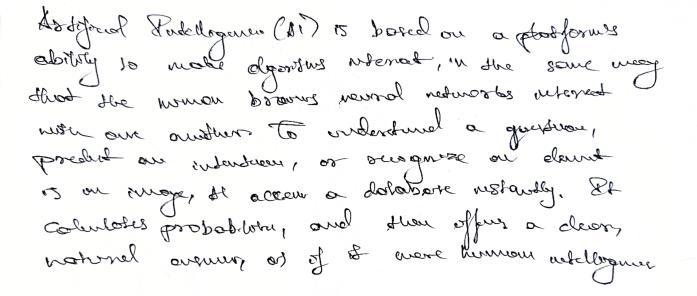 Artificial Intelligence (AI) is based on a platform's
ability to make algorithms interact, in the same way
that the human brains neural networks interact
with one another. To understand a question,
predict an intention, or recognize an element
is an image, it access a database instantly. It
calculates probabilities, and then offers a clear,
natural answer, as if it were human intelligence